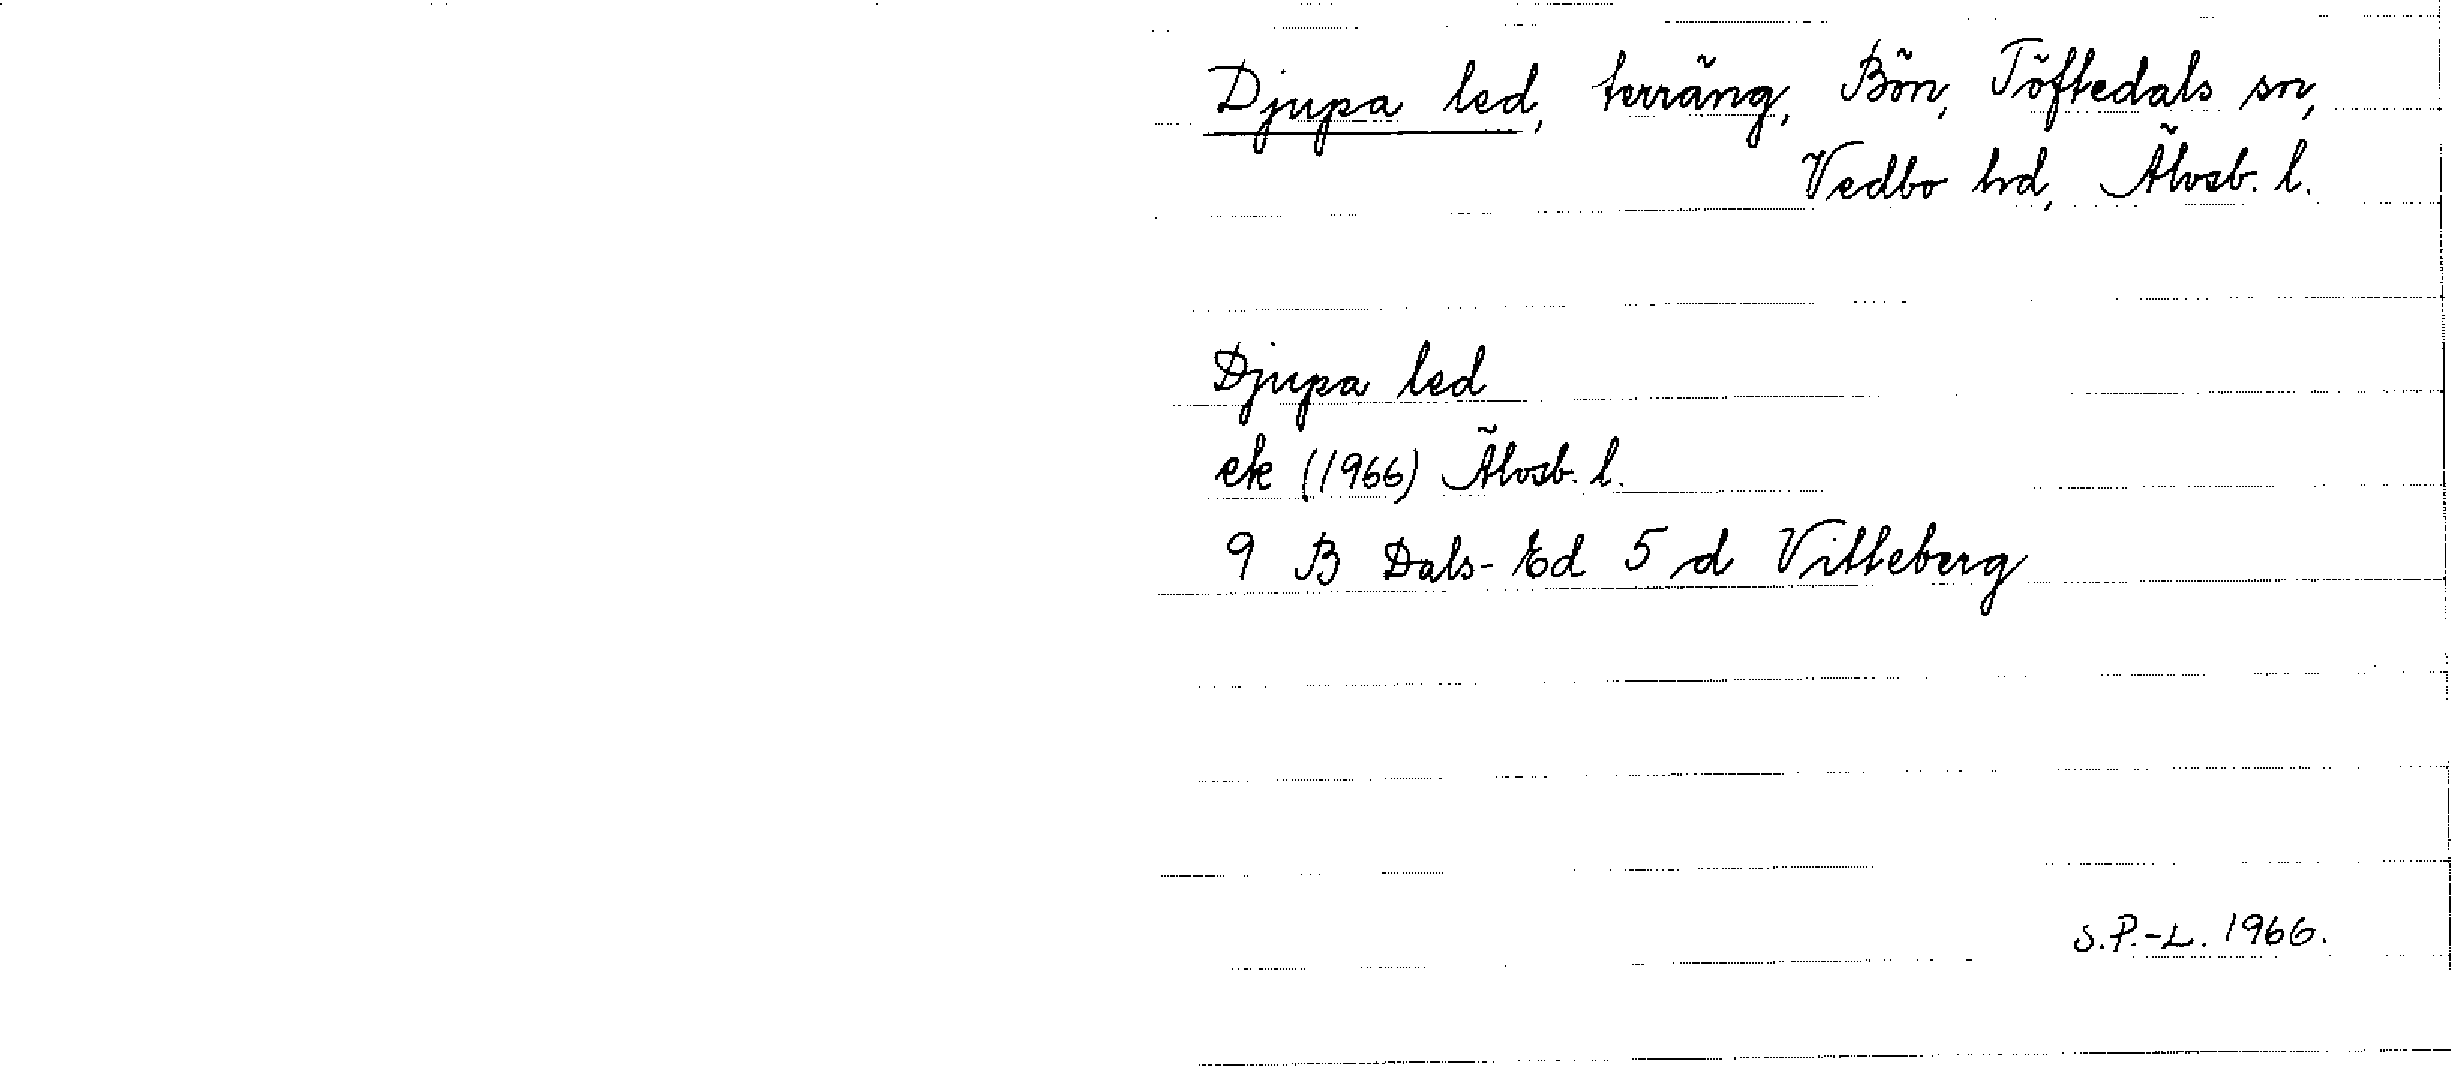 Djupa led, terräng, Bön, Töftedals sn,
Vedbo hd, Älvsb. l.
Djupa led
ek (1966) Älvsb. l.
9 B Dals-Ed 5 d Vitteberg
S.P.-L. 1966.